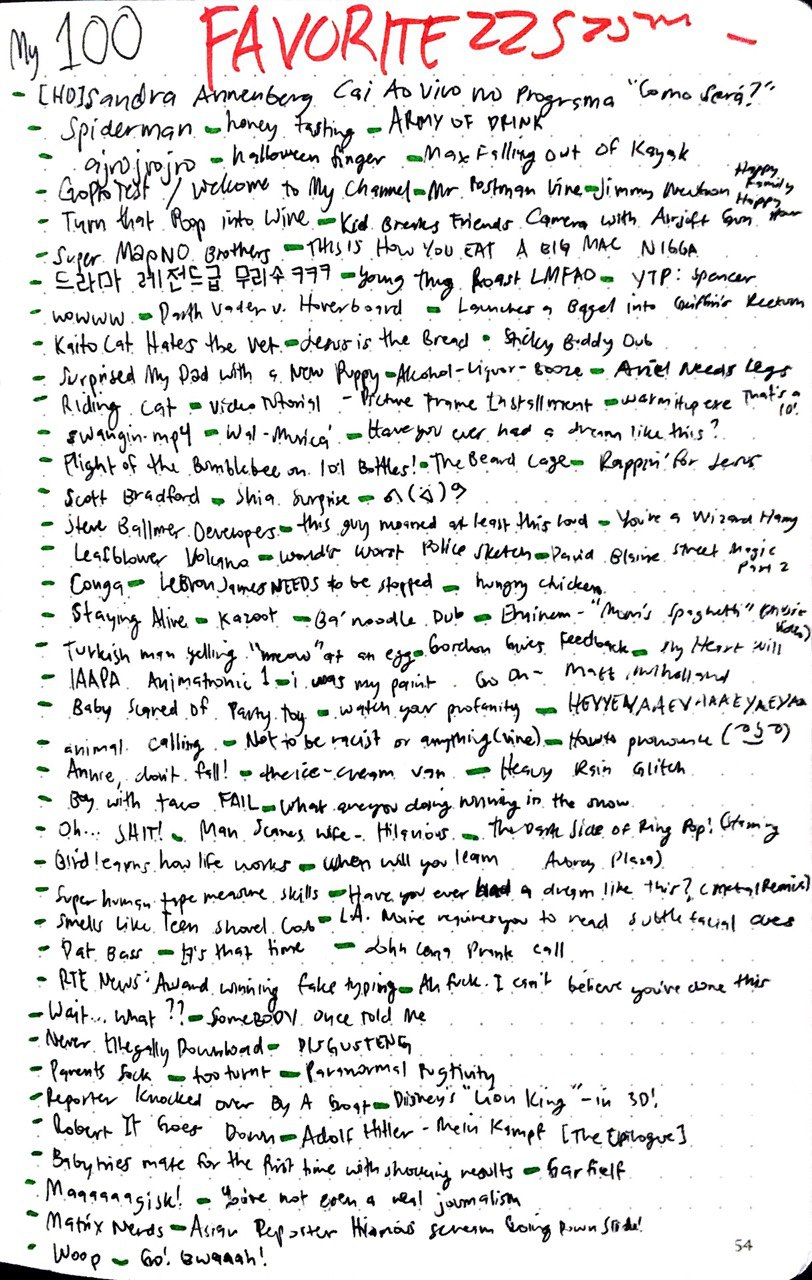 My 100 FAVORITE
- [HD] Sandra Annenberg Cai Ao Vivo no Programa "Como Será?"
- Spiderman - honey tasting - ARMY OF DRINK
- ajrojrojro - halloween finger - Max Falling out of Kayak
- GoPro Test / Welcome to My Channel - Mr Postman Vine - Jimmy Newtron Happy Family Happy Hour
- Turn that Poop into Wine - Kid Breaks Friends Camera with Airsoft Gun
- Super MapNO Brothers - THIS IS HOW YOU EAT A BIG MAC NIGGA
- 드라마 레전드급 무리수 ㅋㅋㅋ - Young Thug Roast LMFAO - YTP: Spencer
- wowww - Darth Vader v. Hoverboard - Launches a Bagel into Rectum
- Kaito Cat Hates the Vet - Jesus is the Bread - Sticky Buddy Dub
- Surprised My Dad with a New Puppy - Alcohol-Liquor-Booze - Ariel Needs Legs
- Riding Cat - Video Tutorial - Picture Frame Installment - warmitup exe That's a 10!
- swangin.mp4 - Wal-Murica' - Have you ever had a dream like this?
- Flight of the Bumblebee on 101 Bottles! - The Beard Cage - Rappin' for Jesus
- Scott Bradford - Shia Surprise
- Steve Ballmer Developers - this guy moaned at least this loud - You're a Wizard Harry
- Leafblower Volcano - world's worst Police Sketch - David Blaine Street Magic Part 2
- Conga - LeBron James NEEDS to be stopped - hungry chicken
- Staying Alive - Kazoot - Ba'noodle Dub - Eminem - "Mom's Spaghetti" (Music Video)
- Turkish man yelling "meow" at an egg - Gordon Gives Feedback - My Heart Will
- IAAPA Animatronic 1 - i was my paint Go On - Matt Mulholland
- Baby Scared of Party Toy - watch your profanity - HEYYEYAAEYAAAEYAEYAA
- animal calling - Not to be racist or anything (vine) - How to pronounce ( ͡° ͜ʖ ͡°)
- Annie, don't fall! - the ice-cream van - Heavy Rain Glitch
- Boy with taco FAIL - what are you doing running in the snow
- Oh... SHIT! - Man Scares Wife - Hilarious - The Dark Side of Ring Pop! (Starring
- Bird learns how life works - when will you learn Aubrey Plaza)
- Super human tape measure skills - Have you ever had a dream like this? (Metal Remix)
- Smells Like Teen Shovel Cab - L.A. Noire requires you to read subtle facial cues
- Dat Bass - It's that time - John Cena Prank call
- RTE News: Award winning fake typing - Ah fuck. I can't believe you've done this
- Wait... what?? - SomeBODY once told me
- Never Illegally Download - DISGUSTENG
- Parents Suck - too turnt - Paranormal Pugtivity
- Reporter Knocked over By A Goat - Disney's "Lion King" - in 3D!
- Robert It Goes Down - Adolf Hitler - Mein Kampf [The Epilogue]
- Baby tries mate for the first time with shocking results - Garfielf
- Maaaaaagisk! - You're not even a real journalism
- Matrix Nerds - Asian Reporter Hilarious scream Going Down Slide!
- Woop - Go! Bwaaah!
54